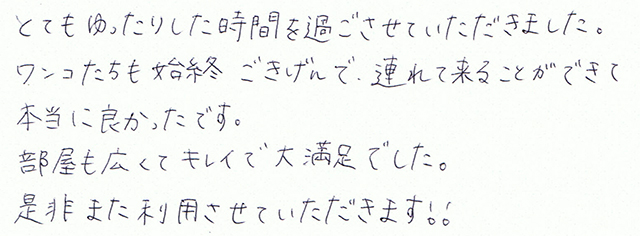 とてもゆったりした時間を過ごさせていただきました。
ワンコたちも始終ごきげんで、連れて来ることができて
本当に良かったです。
部屋も広くてキレイで大満足でした。
是非また利用させていただきます!!